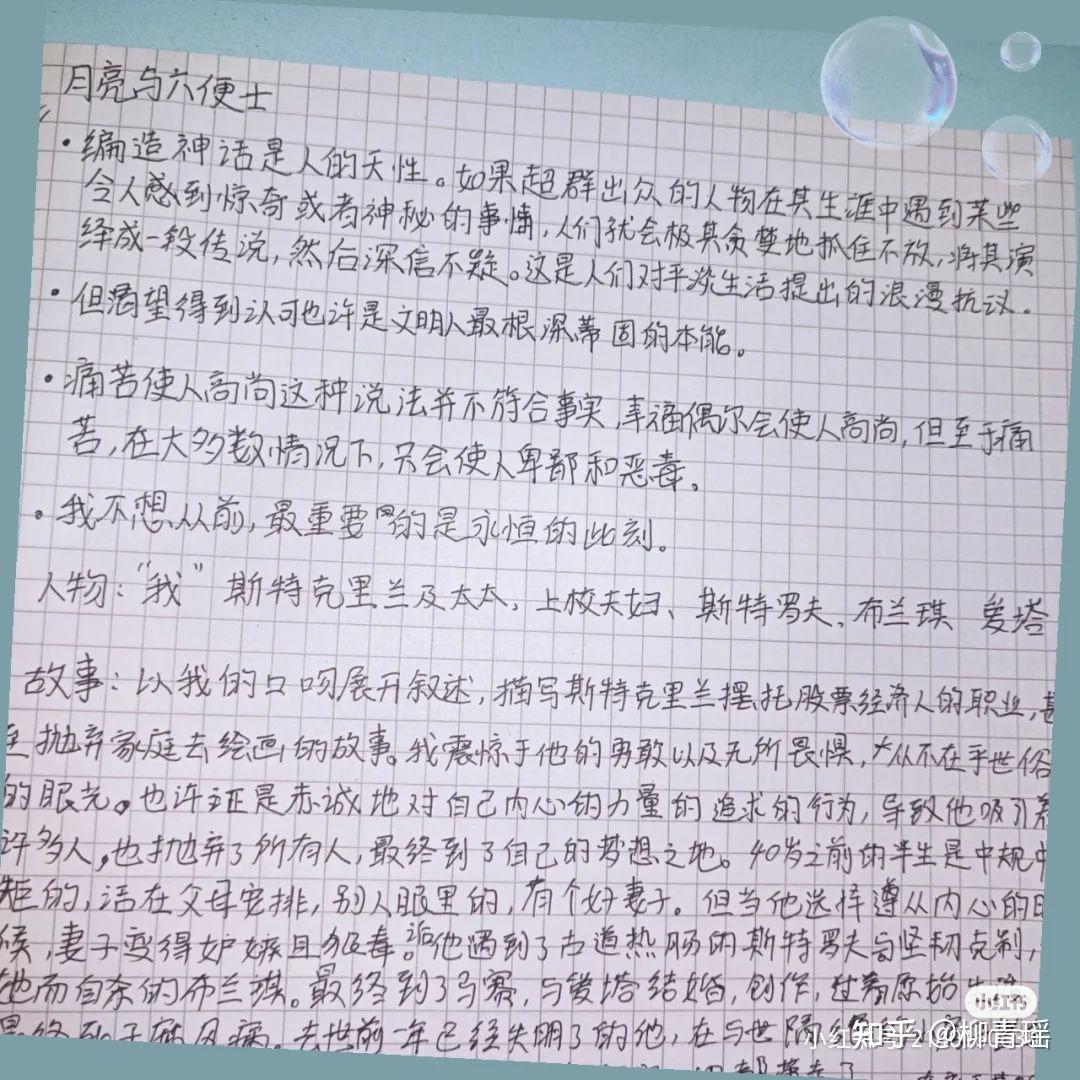 月亮与六便士
• 编造神话是人的天性。如果超群出众的人物在其生涯中遇到某些
令人感到惊奇或者神秘的事情,人们就会极其贪婪地抓住不放,将其演
绎成一段传说,然后深信不疑。这是人们对平淡生活提出的浪漫抗议。
• 但渴望得到认可也许是文明人最根深蒂固的本能。
• 痛苦使人高尚这种说法并不符合事实,幸福偶尔会使人高尚,但至于痛
苦,在大多数情况下,只会使人卑鄙和恶毒。
• 我不想从前,最重要的是永恒的此刻。
人物:“我” 斯特克里兰及太太、上校夫妇、斯特罗夫、布兰琪 爱塔
故事:以我的口吻展开叙述,描写斯特克里兰摆托股票经济人的职业,甚
至抛弃家庭去绘画的故事。我震惊于他的勇敢以及无所畏惧,从不在乎世俗
的眼光。也许正是赤诚地对自己内心的力量的追求的行为,导致他吸引
许多人,也抛弃了所有人,最终到了自己的梦想之地。40岁之前的半生是中规中
矩的,活在父母安排,别人眼里的,有个好妻子。但当他选择遵从内心的时
候,妻子变得妒嫉且狠毒。他遇到了古道热肠的斯特罗夫与坚韧克制,
他而自杀的布兰琪。最终到了马赛,与爱塔结婚,创作,过着原始
去世前一年已经失明了的他,在与世隔
小红书
知乎 @柳青瑶